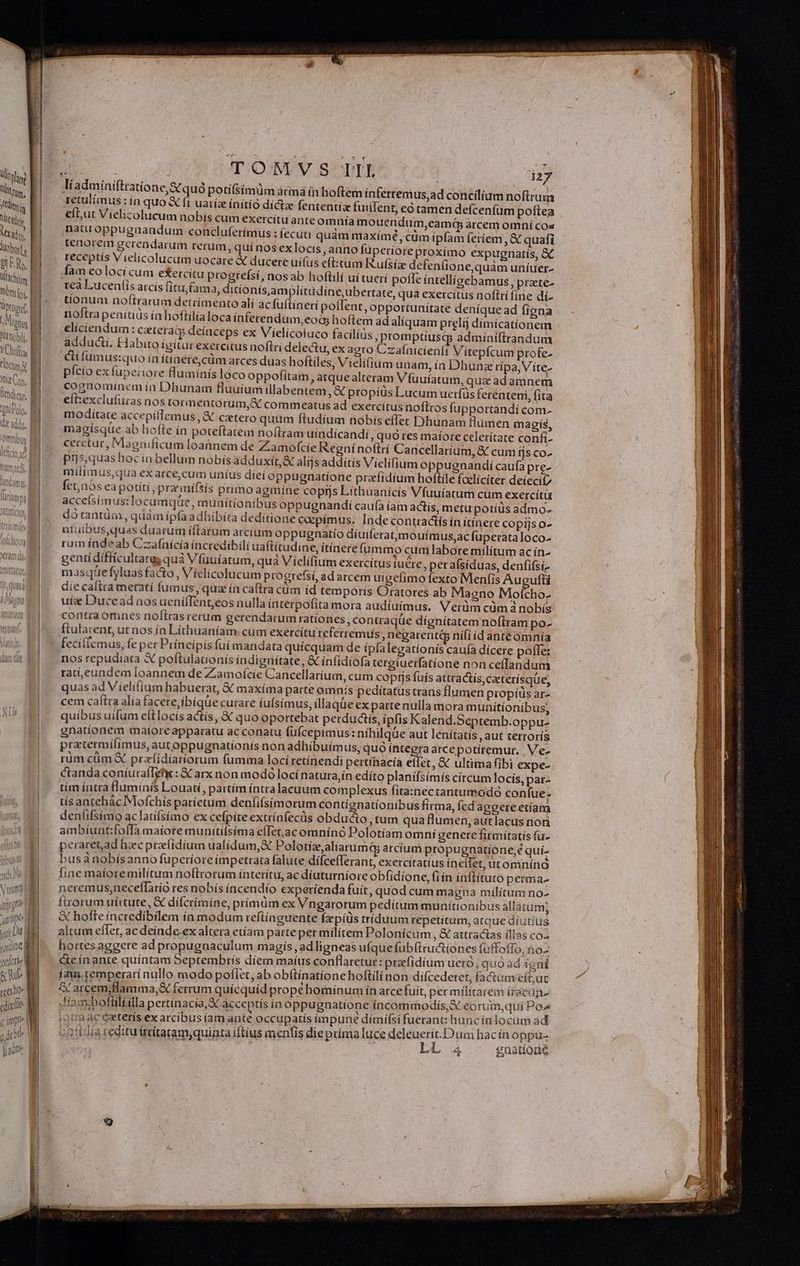 TOMVS III. 127
liadminiſtratione, & quò potiſsimùm arma in hoſtem inferremus, ad conſilium noſtrum
retulimus: in quo & ſi uariæ initio dictæ ſententiæ fuiſſent, eò tamen deſcenſum poſtea
eſt, ut Vielicolucum nobis cum exercitu ante omnia mouendum, eamq́; arcem omni co⸗
natu oppugnandum concluſerimus: ſecuti quàm maximè, cùm ipſam ſeriem, & quaſi
tenorem gerendarum rerum, qui nos ex locis, anno ſuperiore proximo expugnatis, &
receptis Vielicolucum uocare & ducere uiſus eſt: tum Ruſsiæ defenſione, quàm uniuer⸗
ſam eo loci cum exercitu progreſsi, nos ab hoſtili ui tueri poſſe intelligebamus, præte⸗
reà Lucenſis arcis ſitu, fama, ditionis, amplitudine, ubertate, qua exercitus noſtri ſine di⸗
tionum noſtrarum detrimento ali ac ſuſtineri poſſent, opportunitate denique ad ſigna
noſtra penitiùs in hoſtilia loca inferendum, eoq́; hoſtem ad aliquam prelij dimicationem
eliciendum: cæteraq́; deinceps ex Vielicoluco faciliùs, promptiusq́; adminiſtrandum
adducti. Habito igitur exercitus noſtri delectu, ex agro Czaſnicienſi Vitepſcum profe⸗
cti ſumus: quo in itinere, cùm arces duas hoſtiles, Vieliſium unam, in Dhunæ ripa, Vite⸗
pſcio ex ſuperiore fluminis loco oppoſitam, atque alteram Vſuuiatum, quæ ad amnem
cognominem in Dhunam fluuium illabentem, & propiùs Lucum uerſus ferentem, ſita
eſt: excluſuras nos tormentorum, & commeatus ad exercitus noſtros ſupportandi com⸗
moditate accepiſſemus, & cætero quum ſtudium nobis eſſet Dhunam flumen magis,
magisque ab hoſte in poteſtatem noſtram uindicandi, quò res maiore celeritate confi⸗
ceretur, Magnificum Ioannem de Zamoſcie Regni noſtri Cancellarium, & cum ijs co⸗
pijs, quas hoc in bellum nobis adduxit, & alijs additis Vieliſium oppugnandi cauſa pre⸗
miſimus, qua ex arce, cum unius diei oppugnatione præſidium hoſtile fœliciter deieciſ⸗
ſet, nos ea potiti, præmiſsis primo agmine copijs Lithuanicis Vſuuiatum cum exercitu
acceſsimus: locumque, munitionibus oppugnandi cauſa iam actis, metu potiùs admo⸗
do tantùm, quàm ipſa adhibita deditione cœpimus. Inde contractis in itinere copijs o⸗
mnibus, quas duarum iſtarum arcium oppugnatio diuiſerat, mouimus, ac ſuperata loco⸗
rum inde ab Czaſnicia incredibili uaſtitudine, itinere ſummo cum labore militum ac in⸗
genti difficultate, quà Vſuuiatum, quà Vieliſium exercitus iuêre, per aſsiduas, denſiſsi⸗
masque ſyluas facto, Vielicolucum progreſsi, ad arcem uigeſimo ſexto Menſis Auguſti
die caſtra metati ſumus, quæ in caſtra cùm id temporis Oratores ab Magno Moſcho⸗
uiæ Duce ad nos ueniſſent, eos nulla interpoſita mora audiuimus. Verùm cùm à nobis
contra omnes noſtras rerum gerendarum rationes, contraque dignitatem noſtram po⸗
ſtularent, ut nos in Lithuaniam cum exercitu referremus, negarentq́; niſi id ante omnia
feciſſemus, ſe per Principis ſui mandata quicquam de ipſa legationis cauſa dicere poſſe:
nos repudiata & poſtulationis indignitate, & inſidioſa tergiuerſatione non ceſſandum
rati, eundem Ioannem de Zamoſcie Cancellarium, cum copijs ſuis attractis, cæterisque,
quas ad Vieliſium habuerat, & maxima parte omnis peditatus trans flumen propiùs ar⸗
cem caſtra alia facere, ibique curare iuſsimus, illaque ex parte nulla mora munitionibus,
quibus uiſum eſt locis actis, & quo oportebat perductis, ipſis Kalend. Septemb. oppu⸗
gnationem maiore apparatu ac conatu ſuſcepimus: nihilque aut lenitatis, aut terroris
prætermiſimus, aut oppugnationis non adhibuimus, quò integra arce potiremur. Ve⸗
rùm cùm & præſidiariorum ſumma loci retinendi pertinacia eſſet, & ultima ſibi expe⸗
ctanda coniuraſſent: & arx non modò loci natura, in edito planiſsimis circum locis, par⸗
tim intra fluminis Louati, partim intra lacuum complexus ſita: nec tantummodò conſue⸗
tis antehàc Moſchis parietum denſiſsimorum contignationibus firma, ſed aggere etiam
denſiſsimo ac latiſsimo ex ceſpite extrinſecùs obducto, tum qua flumen, aut lacus non
ambiunt: foſſa maiore munitiſsima eſſet, ac omninò Polotiam omni genere firmitatis ſu⸗
peraret, ad hæc præſidium ualidum, & Polotiæ, aliarumq́; arcium propugnatione, è qui⸗
bus à nobis anno ſuperiore impetrata ſalute diſceſſerant, exercitatius ineſſet, ut omninò
ſine maiore militum noſtrorum interitu, ac diuturniore obſidione, ſi in inſtituto perma⸗
neremus, neceſſariò res nobis incendio experienda fuit, quod cum magna militum no⸗
ſtrorum uirtute, & diſcrimine, primùm ex Vngarorum peditum munitionibus allatum,
& hoſte incredibilem in modum reſtinguente ſæpiùs triduum repetitum, atque diutius
altum eſſet, ac deinde ex altera etiam parte per militem Polonicum, & attractas illas co⸗
hortes aggere ad propugnaculum magis, ad ligneas uſque ſubſtructiones ſuffoſſo, no⸗
cte in ante quintam Septembris diem maius conflaretur: præſidium uerò, quò ad igni
iam temperari nullo modo poſſet, ab obſtinatione hoſtili non diſcederet, factum eſt, ut
& arcem, flamma, & ferrum quicquid propè hominum in arce fuit, per militarem iracun⸗
diam, hoſtili illa pertinacia, & acceptis in oppugnatione incommodis, & eorum, qui Po⸗
lotia ac cæteris ex arcibus iam ante occupatis impunè dimiſsi fuerant: hunc in locum ad
hoſtilia reditu irritatam, quinta iſtius menſis die prima luce deleuerit. Dum hac in oppu⸗
LL 4 gnatione